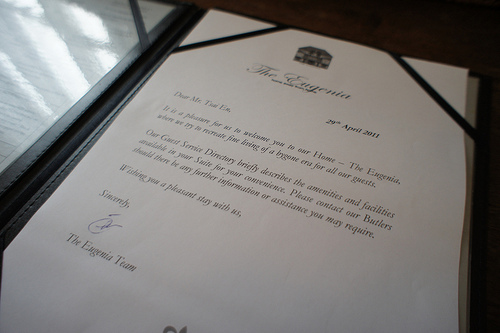 The Eugenia
29th April 2011
Dear Mr. Tsai En,
It is a pleasure for us to welcome you to our Home – The Eugenia,
where we try to recreate fine living of a bygone era for all our guests.
Our Guest Service Directory briefly describes the amenities and facilities
available in your Suite for your convenience. Please contact our Butlers
should there be any further information or assistance you may require.
Wishing you a pleasant stay with us,
Sincerely,
The Eugenia Team